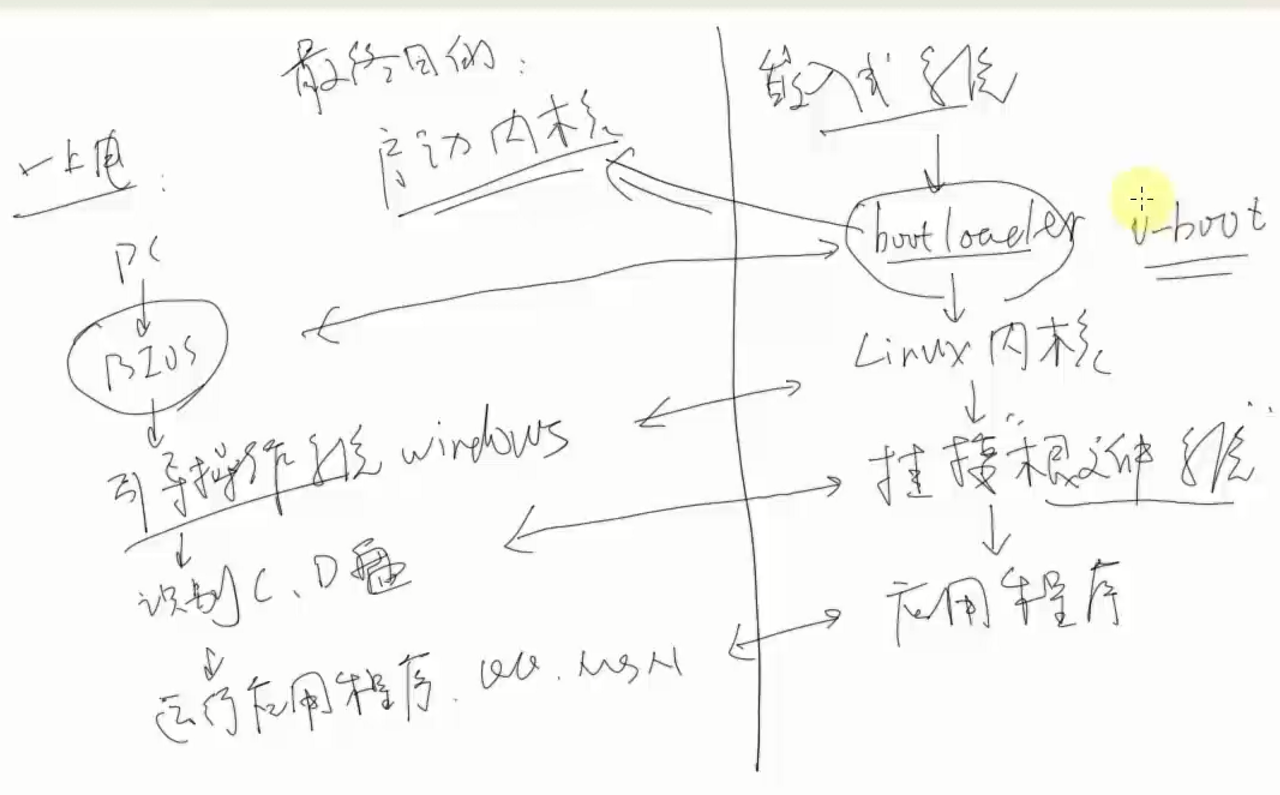 最终目的:
启动内核
一上电:
PC
BIOS
引导操作系统 windows
识别C、D盘
运行应用程序. QQ. MSN
嵌入式系统
bootloader
u-boot
Linux内核
挂接根文件系统
应用程序